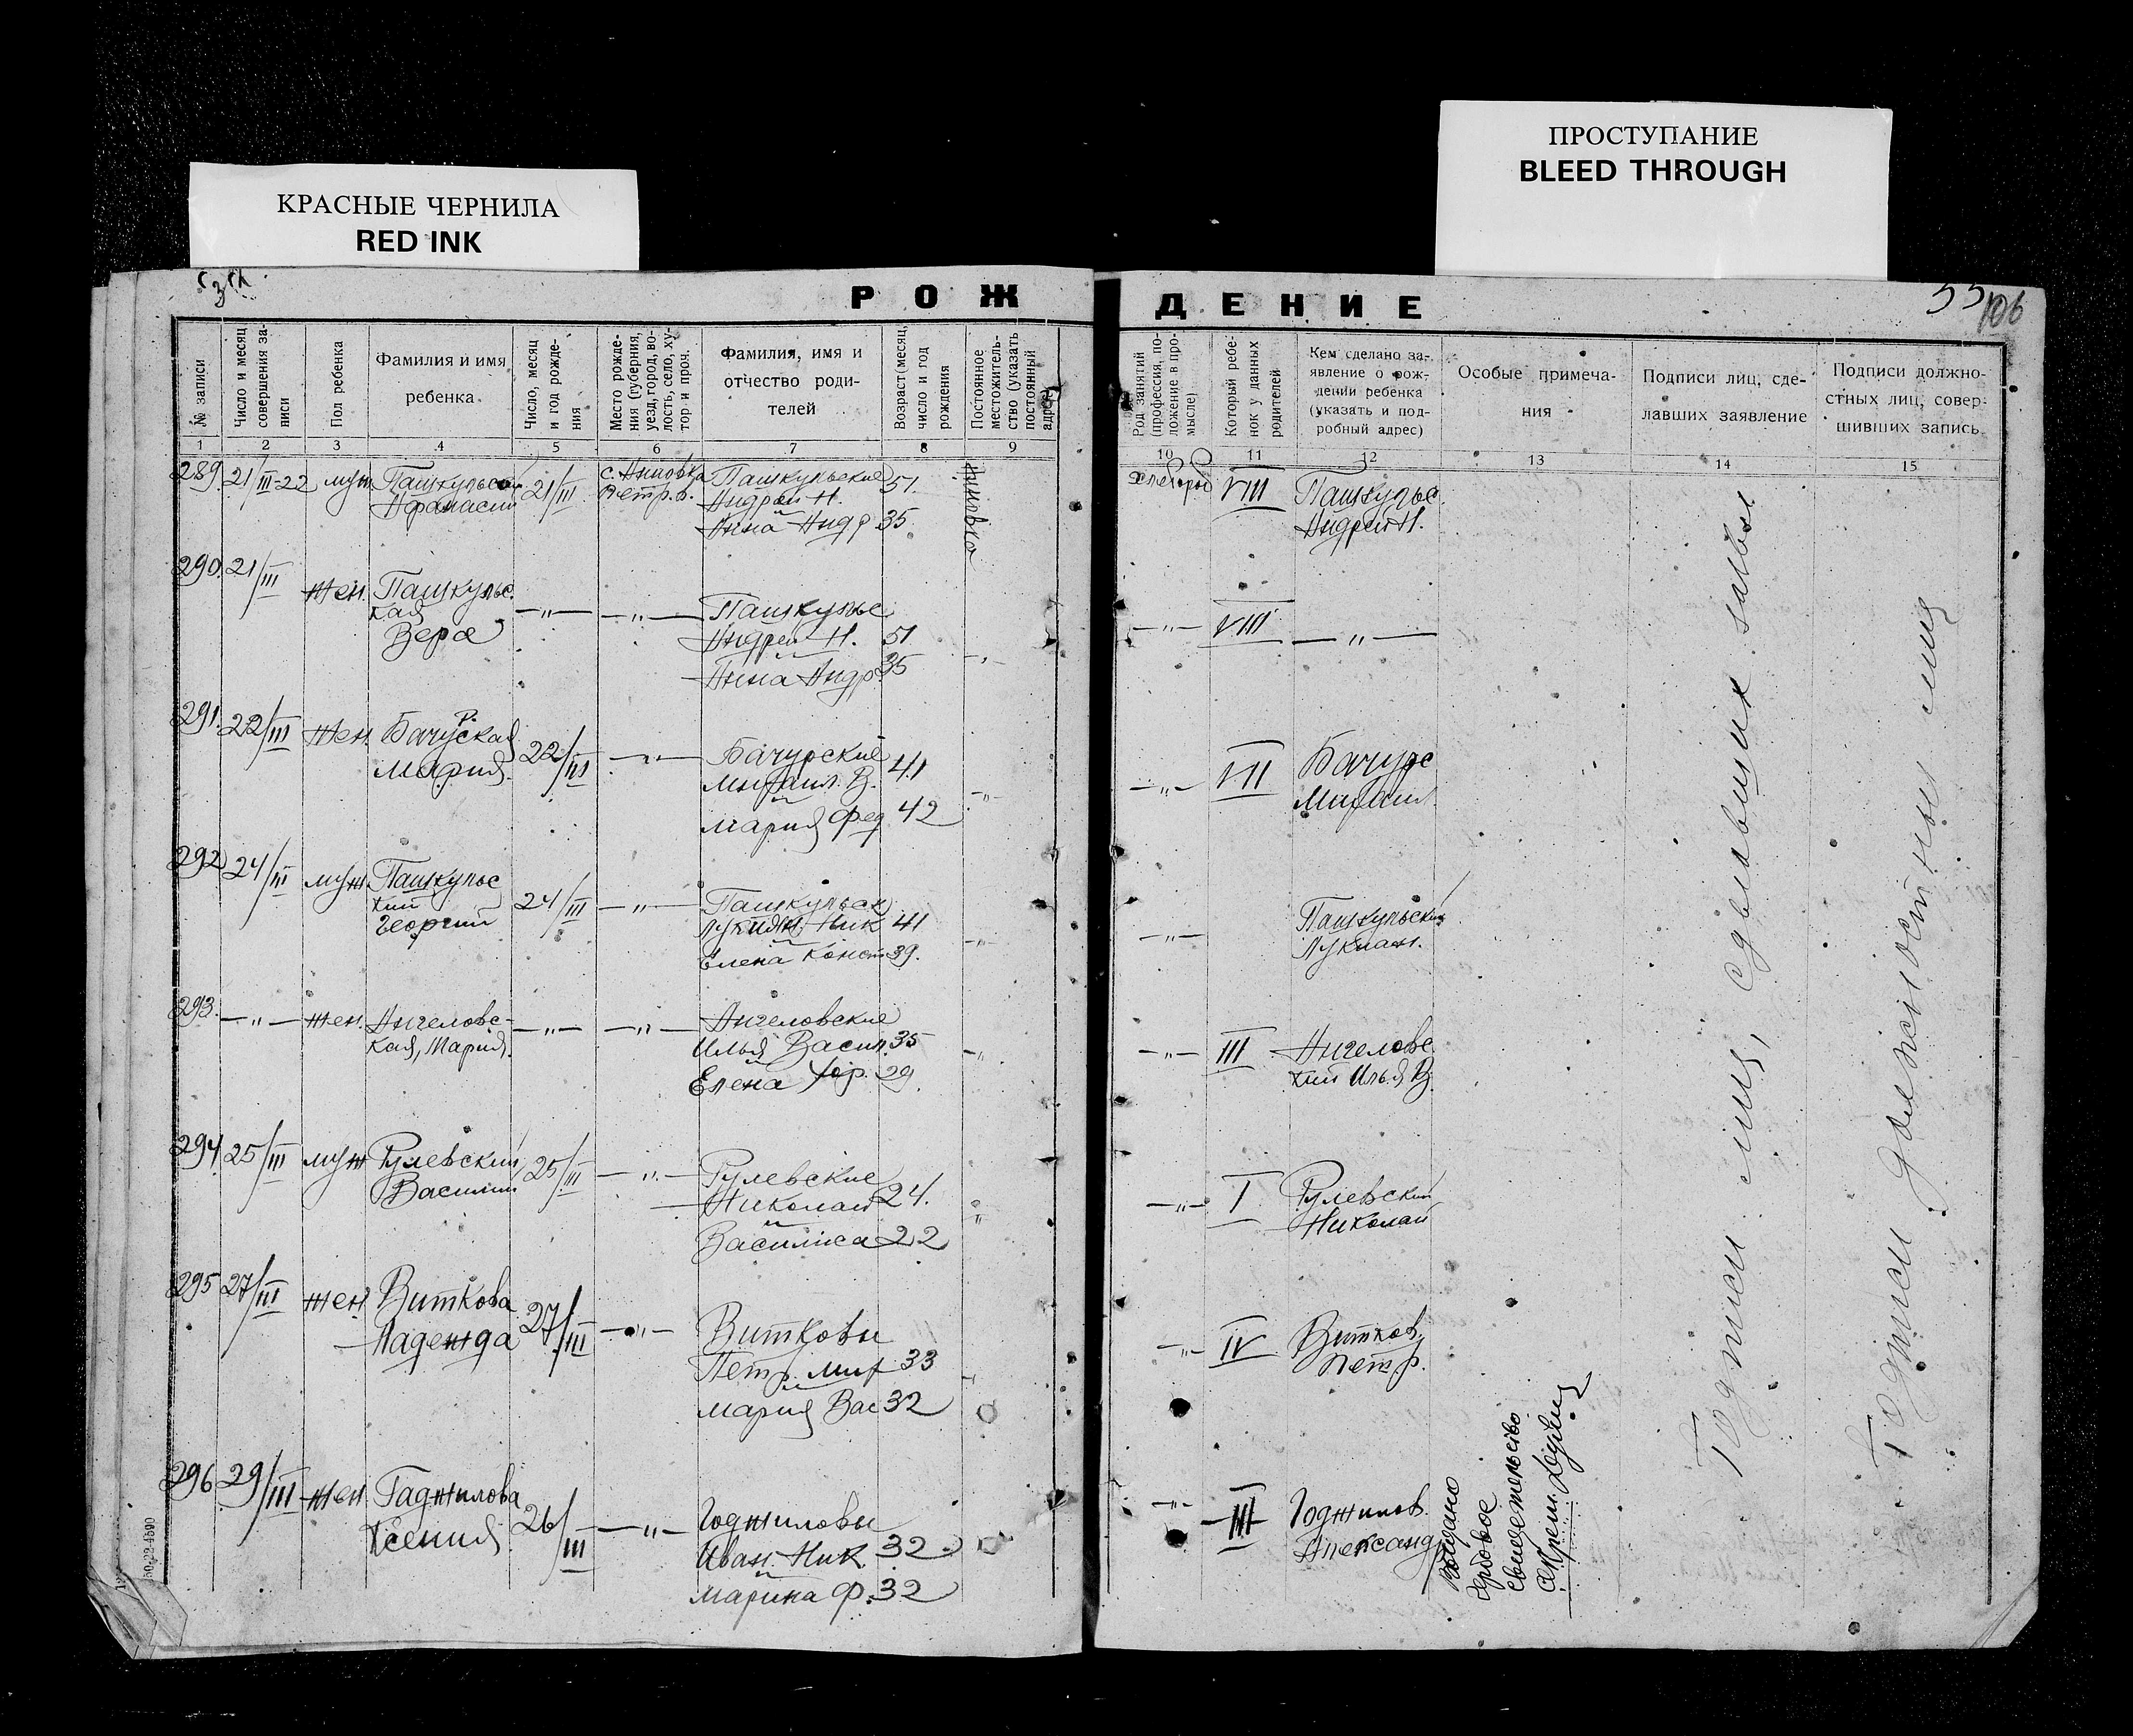 КРАСНЫЕ ЧЕРНИЛА
RED INK
ПРОСТУПАНИЕ
BLEED THROUGH
РОЖДЕНИЕ
106
№ записи
Число и месяц совершения записи
Пол ребенка
Фамилия и имя ребенка
Число, месяц и год рождения
Место рождения (губерния, уезд, город, волость, село, хутор и проч.
Фамилия, имя и отчество родителей
Возраст (месяц, число и год рождения
Постоянное местожительство (указать постоянный адрес)
Род занятий (профессия, положение в промысле)
Который ребенок у данных родителей
Кем сделано заявление о рождении ребенка (указать и подробный адрес)
Особые примечания
Подписи лиц, сделавших заявление
Подписи должностных лиц, совершивших запись
1 2 3 4 5 6 7 8 9 10 11 12 13 14 15
289 21/III-22 муж Пашкульский 21/III Пашкульские 51 VIII Пашкульс
Афанасий Андрей Н. Андрей Н.
Анна Андр 35
290 21/III жен. Пашкульс
кая —"— —"— Пашкульс —"— VIII —"—
Вера Андрей Н. 51
Анна Андр 35
291 22/III жен. Бачурская 22/III —"— Бачурские —"— VII Бачурс
Мария Михаил. В. 41 Михаил
Мария Фед 42
292 24/III муж Пашкульс
кий 24/III —"— Пашкульск —"— Пашкульский
Георгий Лукиян Ник 41 Лукиан.
Елена Конст 39.
293. —"— жен. Ангеловс- —"— —"— Ангеловские —"— III Ангеловс
кая, Мария. Илья Васил. 35 кий Илья В
Елена 29
294 25/III муж Рулевский 25/III —"— Рулевские —"— I Рулевский
Василий Николай 24. Николай
Василиса 22
295 27/III жен Виткова 27/III —"— Витковы —"— IV Витков
Надежда Петр Мих 33 Петр.
Мария Вас 32
296 29/III жен Гаджилова 26/III —"— Годжиловы —"— III Годжилов
Ксения Иван. Ник 32 Александ
Марина Ф. 32
Выдано
гербовое
свидетельство
Подписи лиц, сделавших заявл
Подписи должностных лиц